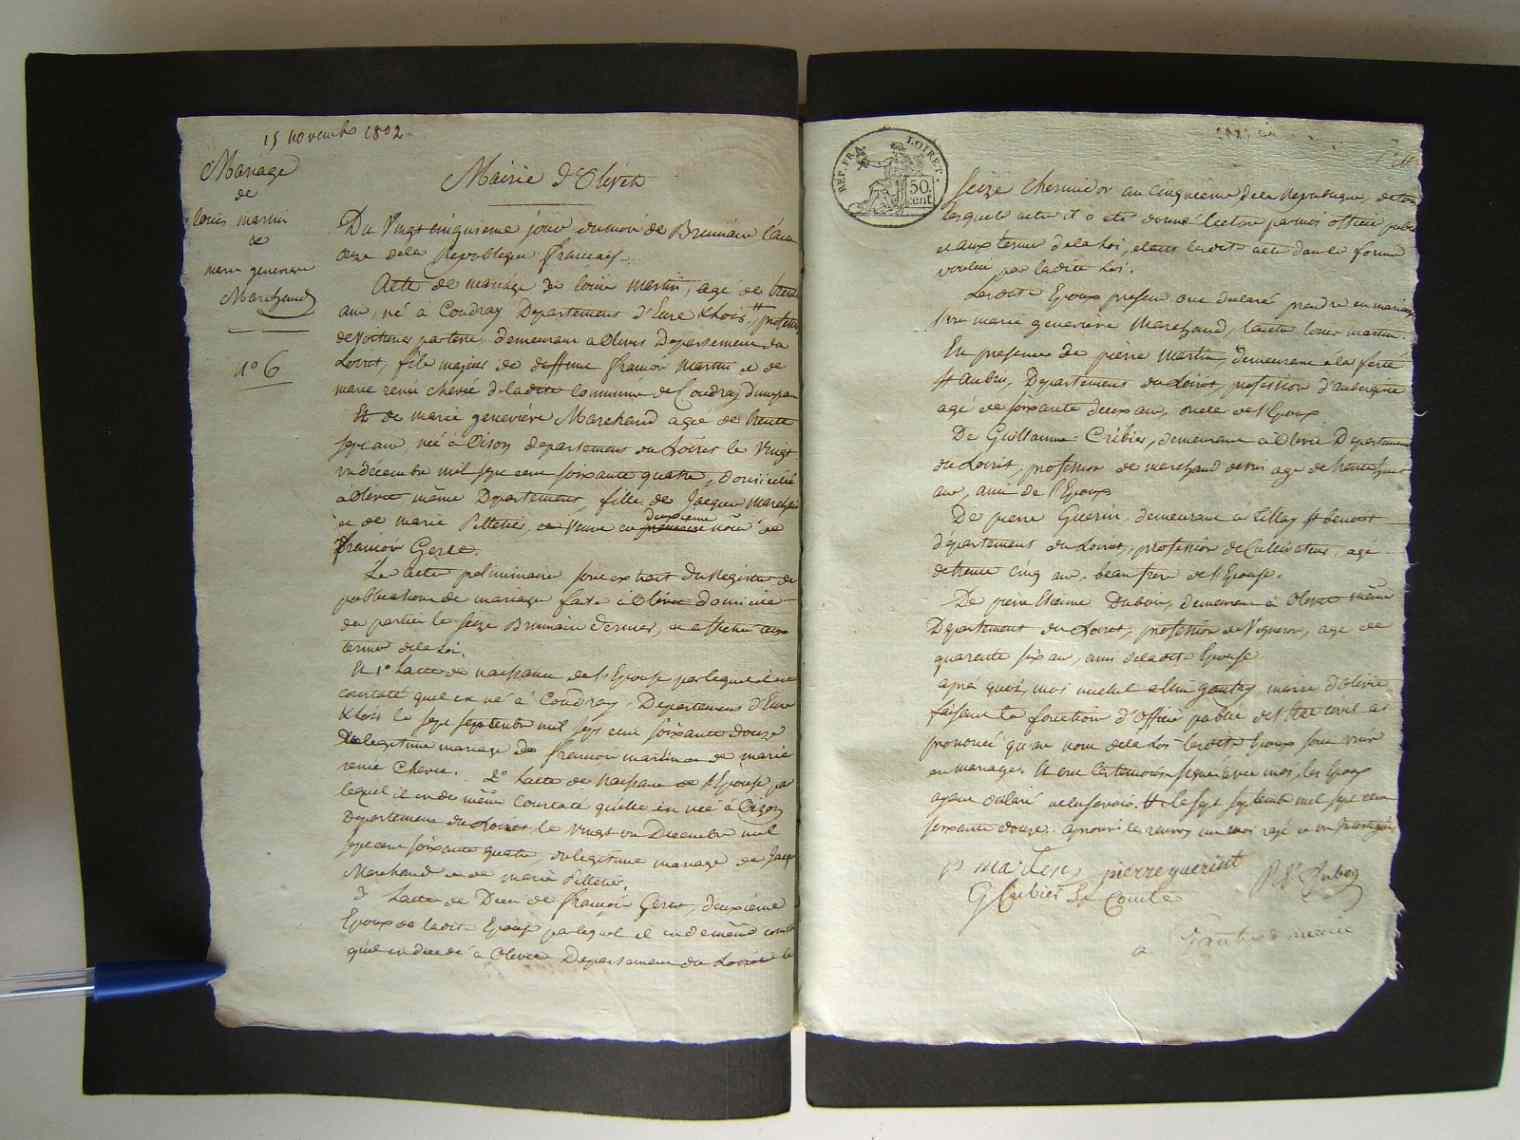 15 novembre 1802
Mariage
de
louis martin
&
marie genevieve
Marchand
n° 6
Mairie d'Olivet
Du Vingt cinquieme jour du mois de Brumaire l'an
onze de la Republique francaise
Acte de mariage de louis martin, agé de trente
ans, né à Coudray Departement d'Eure & Loir, #
de Voitures par terre, demeurant a Olivet Departement du
Loiret, fils majeur de deffunt françois Martin et de
marie renée chevié de ladite Commune de Coudray
Et de marie geneviève Marchand agée de trente
sept ans née à Oison departement du Loiret le Vingt
un decembre mil sept cent soixante quatre, Domiciliée
a Olivet même Departement, fille de Jacques Marchand
et de marie Pelletié, et Veuve en deuxieme premiere nôce de
françois Geree.
Les actes preliminaires sont extrait du Registre de
publications de mariage fait à Olivet domicile
des parties le seize Brumaire dernier, et affiché aux
termes de la Loi.
Et 1° l'acte de naissance de l'Epoux par lequel il est
constaté qu'il est né à Coudray Departement d'Eure
& Loir le sept septembre mil sept cent soixante douze
De legitime mariage de françois martin et de marie
renée Chevié. 2° l'acte de naissance de l'Epouse par
lequel il est de même Constaté qu'elle est née à Oizon
departement du Loiret, le Vingt un Decembre mil
sept cent soixante quatre, du legitime mariage de Jacques
Marchand et de marie Pelletié.
3° l'acte de Deces de françois Geree, deuxième
Epoux de ladite Epouse par lequel il est de même constaté
qu'il est decedé à Olivet Departement du Loiret le
REP. FRA. LOIRET.
50 cent
seize thermidor an cinquieme de la Republique, de tous
lesquels actes il a eté donné lecture par moi officier public
et aux termes de la Loi, et dans la forme
voulue par ladite Loi.
Lesdits Epoux present ont declaré prendre en mariage
l'un marie genevieve Marchand, l'autre louis martin.
En presence de pierre Martin, demeurant a la ferté
St Aubin, Departement du Loiret, profession d'aubergiste
agé de soixante deux ans, oncle de l'Epoux
De Guillaume Cribier, demeurant à Olivet Departement
du Loiret, profession de marchand de vin agé de trente
ans, ami de l'Epoux
De pierre Guerin, demeurant a Tillay St benoist
departement du Loiret, profession de Cultivateur, agé
de trente cinq ans, beau frere de l'Epouse.
De pierre Etienne Dubois, demeurant à Olivet même
Departement du Loiret, profession de Vigneron, agé de
quarante six ans, ami de ladite Epouse
après quoi, moi michel gautry, maire d'Olivet
faisant la fonction d'Officier public de l'état civil ai
prononcé qu'au nom de la Loi lesdits Epoux sont unis
en mariage. Et ont les temoins signé avec moi, les Epoux
ayant declaré ne le savoir. # le sept septembre mil sept cent
soixante douze. approuvé le renvoy un mot rayé
p martin pierre guerin
G Cribier